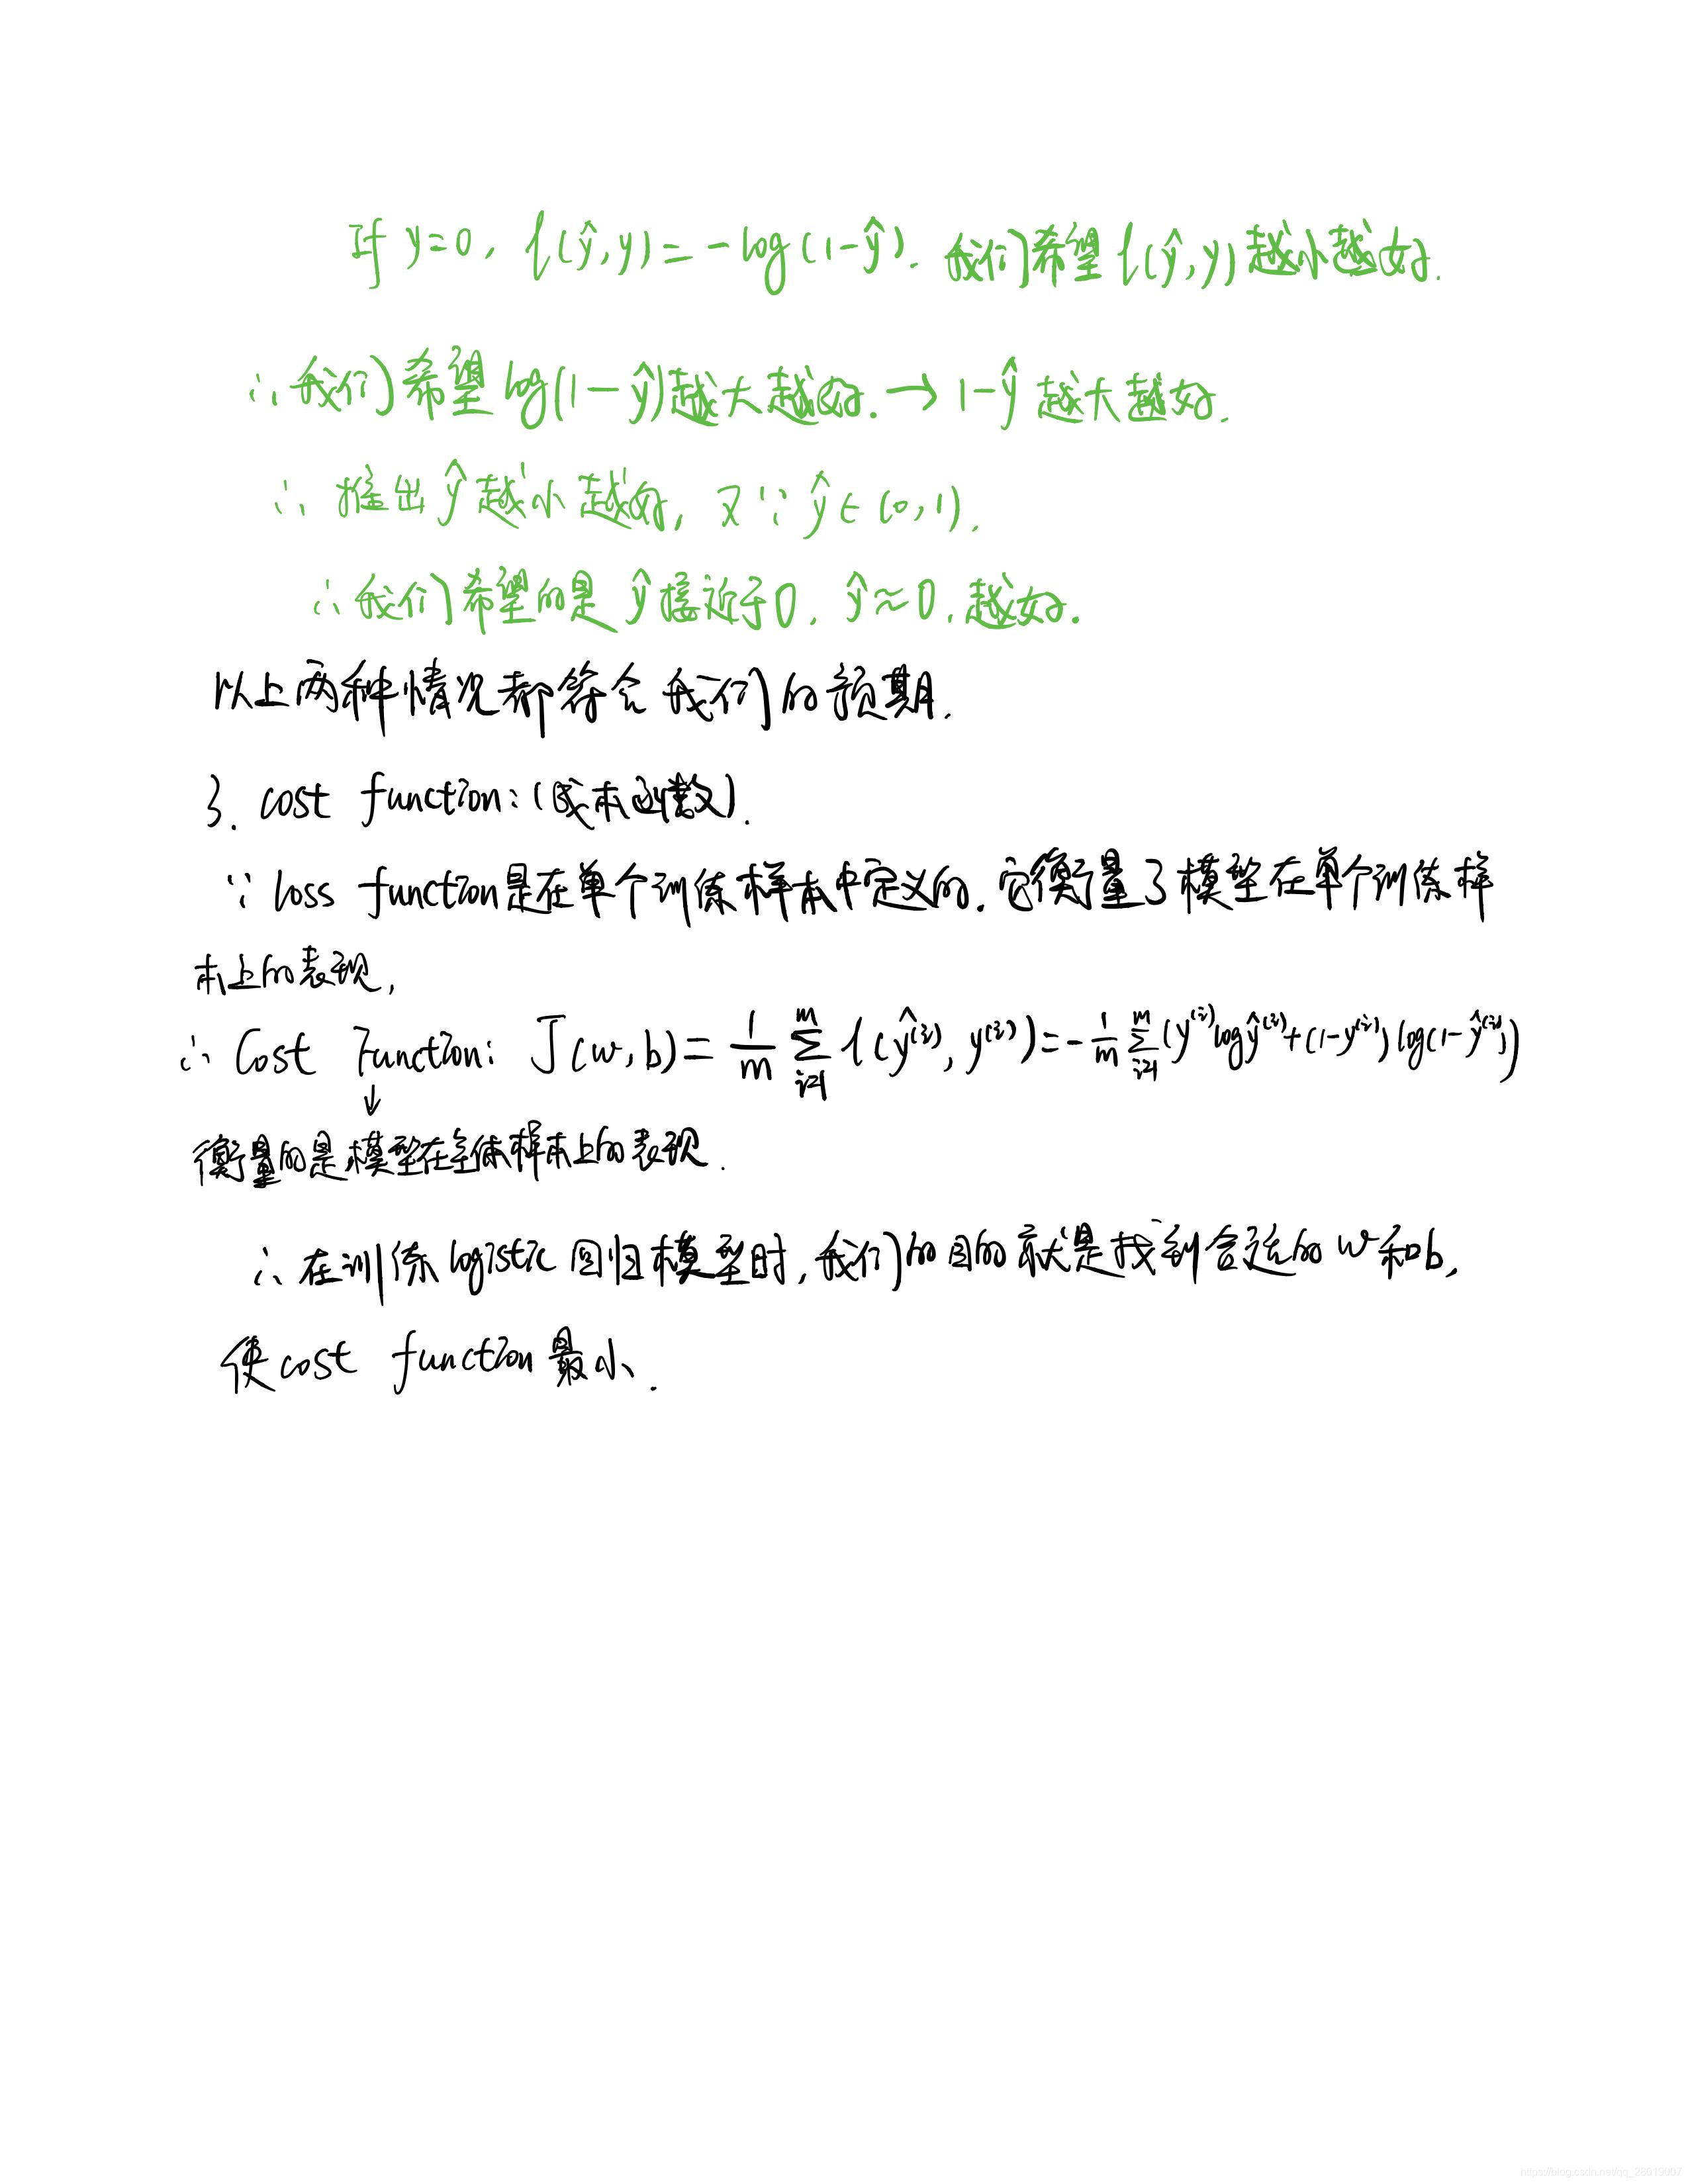 If y=0, l(ŷ,y)=-log(1-ŷ). 我们希望l(ŷ,y)越小越好.
∴我们希望log(1-ŷ)越大越好.→1-ŷ越大越好.
∴推出ŷ越小越好, 又∵ŷ∈(0,1).
∴我们希望的是ŷ接近于0, ŷ≈0,越好.
以上两种情况都符合我们的预期.
3. cost function:(成本函数).
∵loss function是在单个训练样本中定义的.它衡量了模型在单个训练样
本上的表现,
∴Cost Function: J(w,b)=1/m ∑_{i=1}^{m} l(ŷ^(i), y^(i))=-1/m ∑_{i=1}^{m}(y^(i)logŷ^(i)+(1-y^(i))log(1-ŷ^(i)))
↓
衡量的是模型在全体样本上的表现.
∴在训练logistic回归模型时,我们的目的就是找到合适的w和b,
使cost function最小.
https://blog.csdn.net/qq_26019007